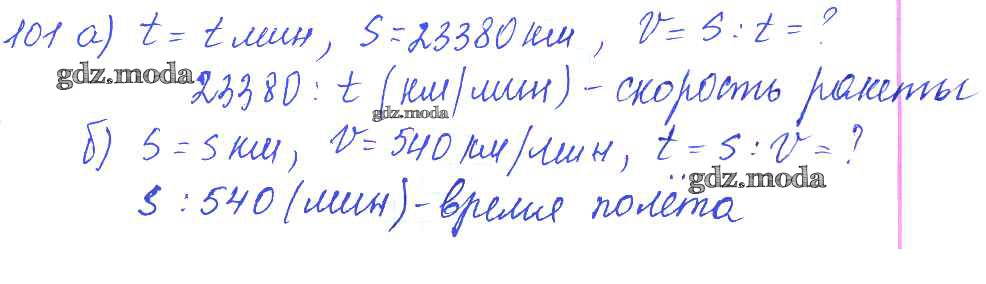 101 а) t = t мин, S = 23380 км, V = S : t = ?
gdz.moda
23380 : t (км/мин) - скорость ракеты
gdz.moda
б) S = S км, V = 540 км/мин, t = S : V = ?
gdz.moda
S : 540 (мин) - время полёта